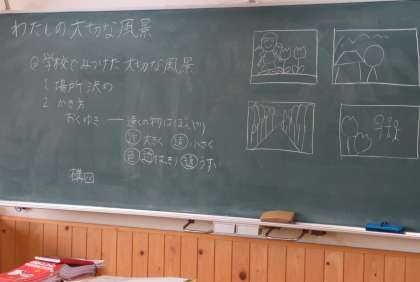 わたしの大切な風景
◎学校でみつけた大切な風景
1. 場所決め
2 かき方
おくゆき ― 遠くの物はぼんやり
近 大きく 遠 小さく
色 近 はっきり 遠 うすい
構図